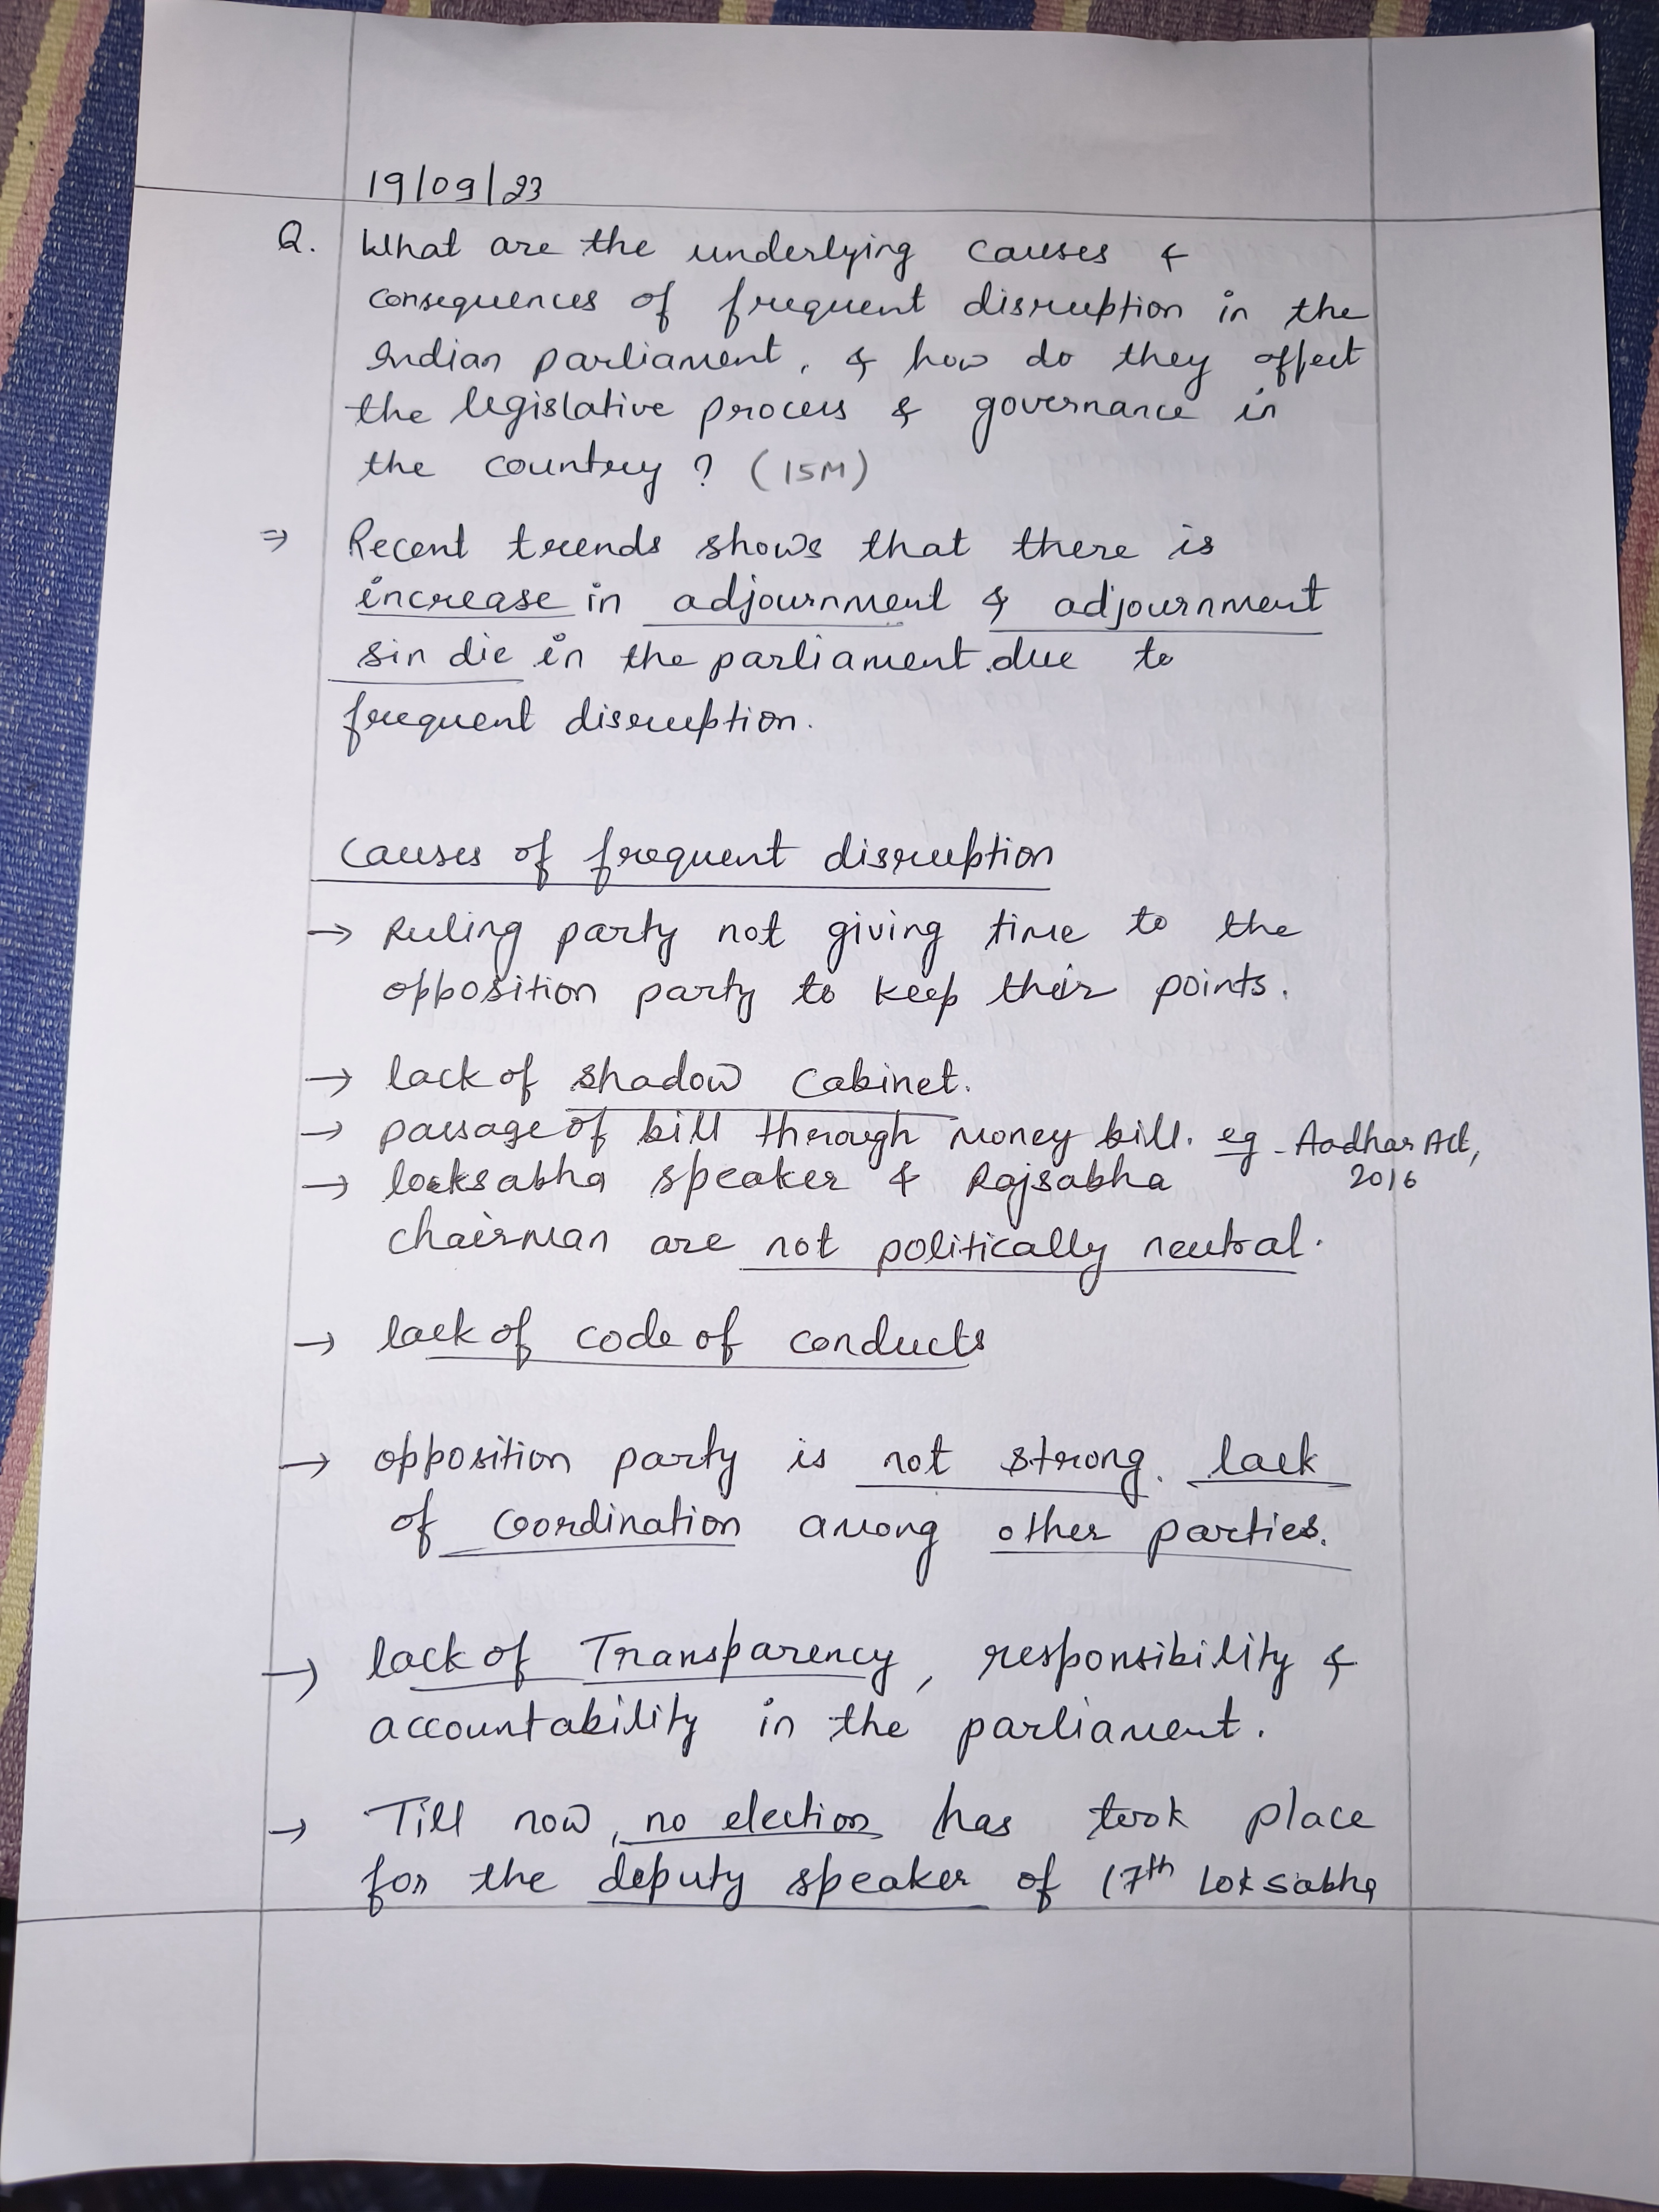 19/09/23
Q. What are the underlying causes &
consequences of frequent disruption in the
Indian parliament, & how do they affect
the legislative process & governance in
the country? (15M)
⇒ Recent trends shows that there is
increase in adjournment & adjournment
sin die in the parliament due to
frequent disruption.
Causes of frequent disruption
→ Ruling party not giving time to the
opposition party to keep their points.
→ lack of shadow cabinet.
→ passage of bill through money bill. eg - Aadhar Act,
2016
→ loksabha speaker & Rajsabha
chairman are not politically neutral.
→ lack of code of conducts
→ opposition party is not strong. lack
of coordination among other parties.
→ lack of Transparency, responsibility &
accountability in the parliament.
→ Till now, no election has took place
for the deputy speaker of 17th loksabha